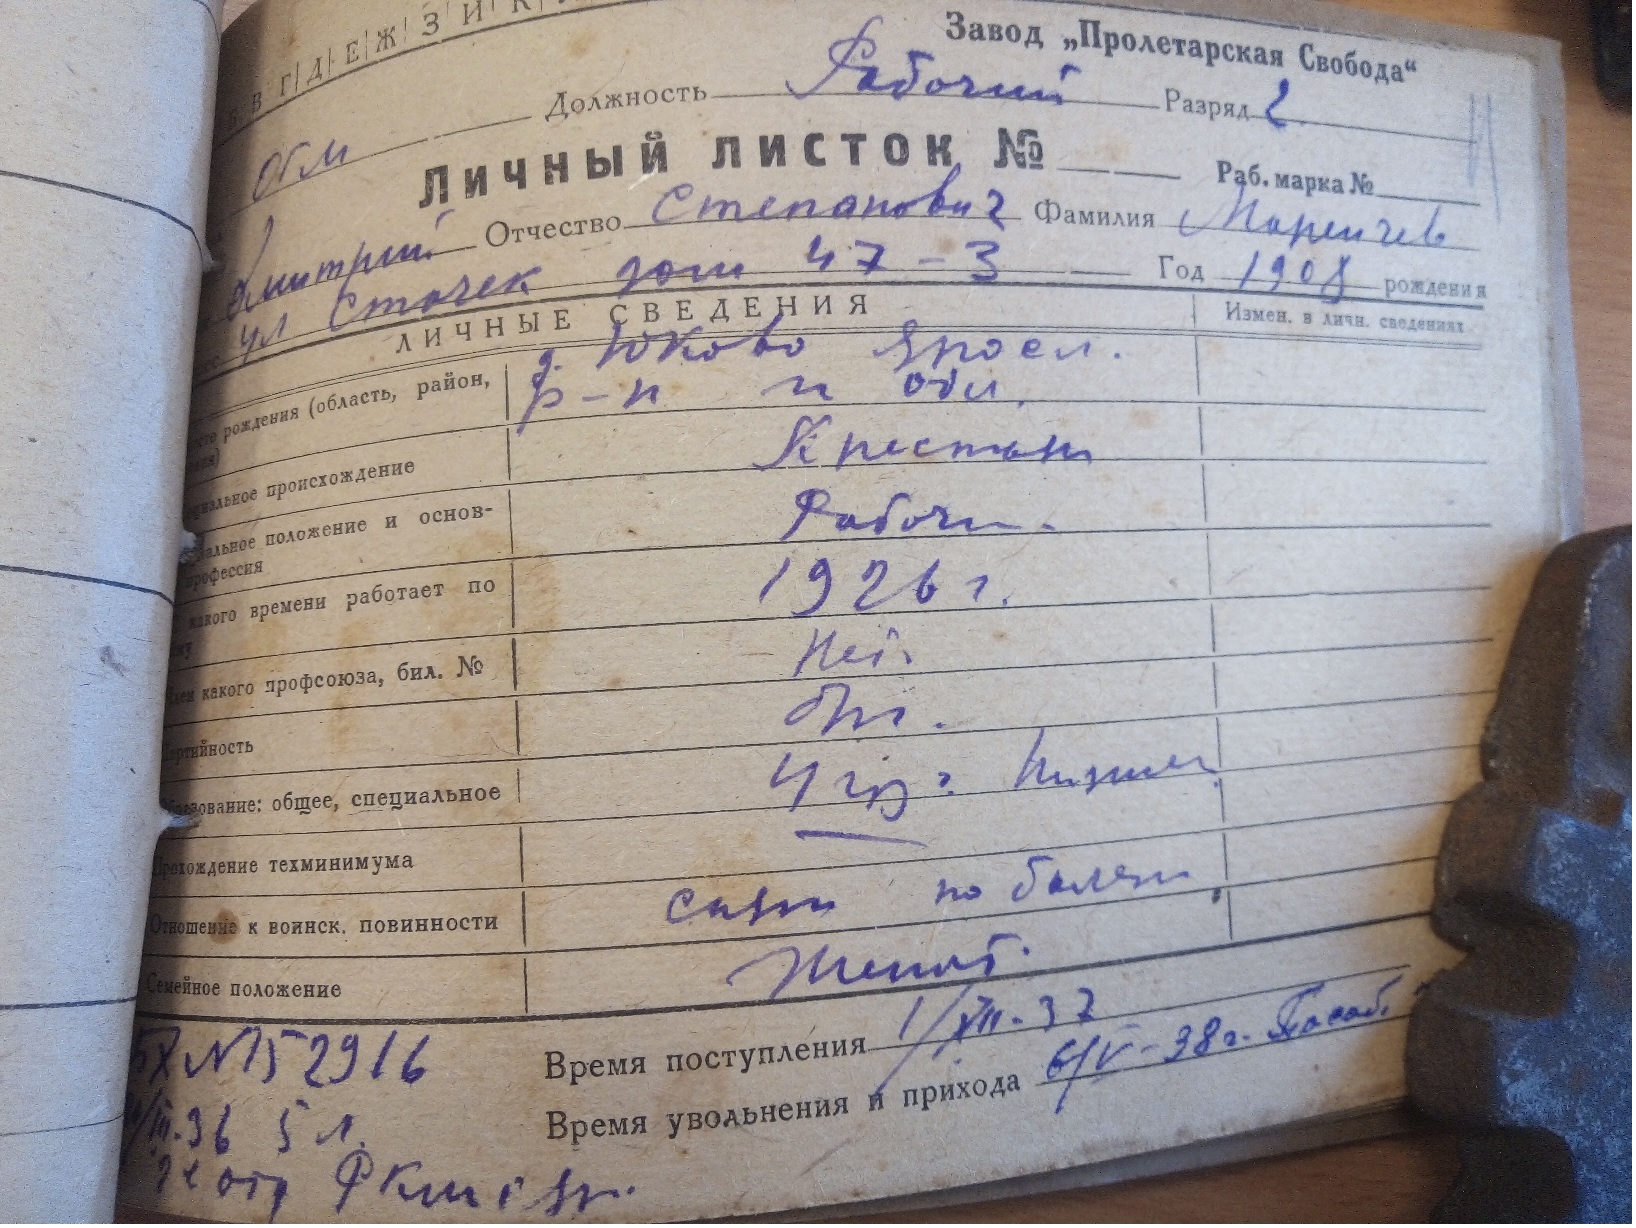 В Г Д Е Ж З И К
Завод „Пролетарская Свобода“
Должность Рабочий Разряд 2
Личный листок №
Раб. марка №
Дмитрий Отчество Степанович Фамилия Маричев
ул Стачек дом 47-3 Год 1908 рождения
ЛИЧНЫЕ СВЕДЕНИЯ Измен. в личн. сведениях
рождения (область, район, д. Юково Яросл.
р-н и обл.
происхождение Крестьян
положение и основ- Рабочи
профессия
какого времени работает по 1926 г.
какого профсоюза, бил. № Нет.
общее, специальное 4 гр. Низшее
Прохождение техминимума —
Отношение к воинск. повинности снят по болезн
Семейное положение Женат.
№152916 Время поступления 1/XII-37
Время увольнения и прихода 6/V-38г.
36 5 л.